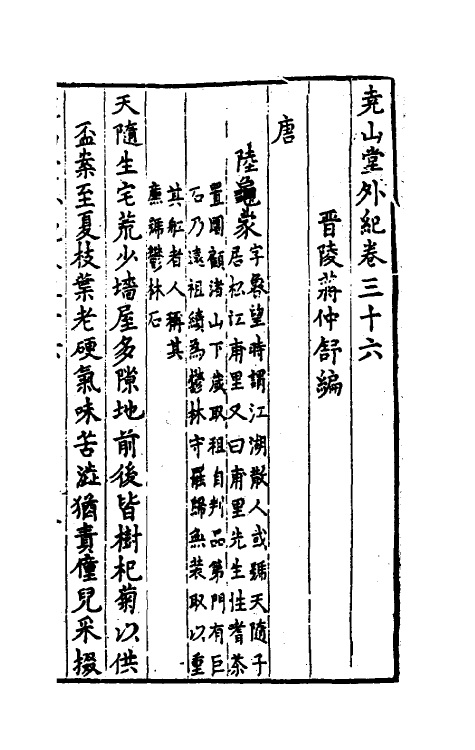 堯山堂外紀卷三十六
晉陵蔣仲舒編
唐
陸龜蒙
字魯望時謂江湖散人或號天隨子
居松江甫里又曰甫里先生性耆茶
置園顧渚山下歲取租自判品第門有巨
石乃遠祖績為鬱林守罷歸無裝取以重
其舡者人稱其
廉號鬱林石
天隨生宅荒少墻屋多隙地前後皆樹杞菊以供
盃案至夏枝葉老硬氣味苦澁猶責僮兒采掇